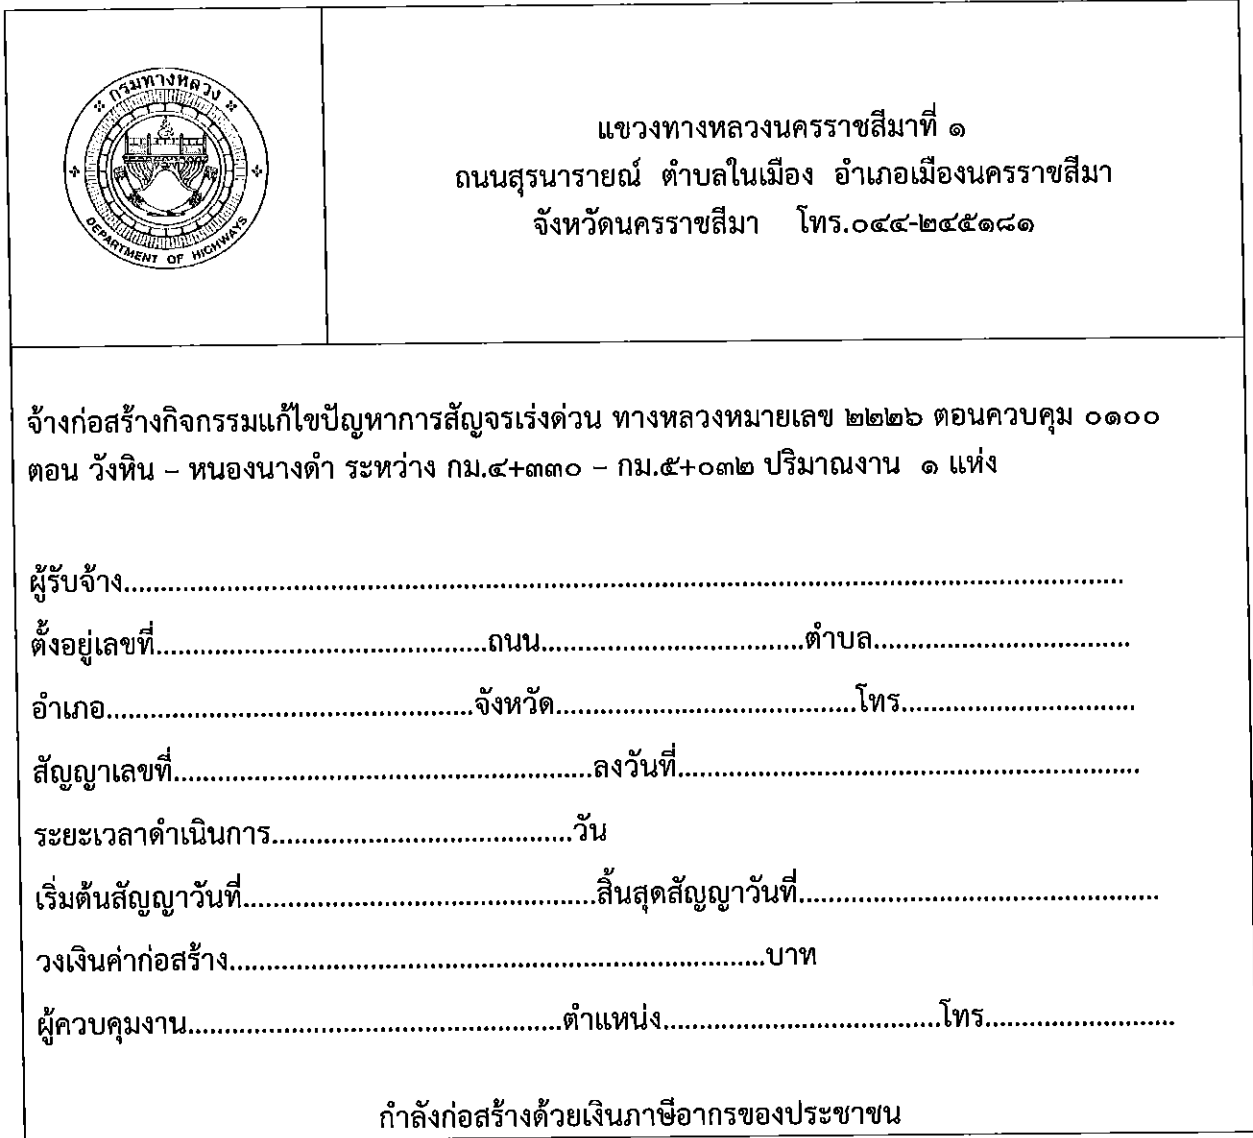 กรมทางหลวง
DEPARTMENT OF HIGHWAYS
แขวงทางหลวงนครราชสีมาที่ ๑
ถนนสุรนารายณ์ ตำบลในเมือง อำเภอเมืองนครราชสีมา
จังหวัดนครราชสีมา โทร.๐๔๔-๒๔๕๑๘๑
จ้างก่อสร้างกิจกรรมแก้ไขปัญหาการสัญจรเร่งด่วน ทางหลวงหมายเลข ๒๒๒๖ ตอนควบคุม ๐๑๐๐
ตอน วังหิน – หนองนางดำ ระหว่าง กม.๔+๓๓๐ – กม.๕+๐๓๒ ปริมาณงาน ๑ แห่ง
ผู้รับจ้าง....................
ตั้งอยู่เลขที่....................ถนน....................ตำบล....................
อำเภอ....................จังหวัด....................โทร....................
สัญญาเลขที่....................ลงวันที่....................
ระยะเวลาดำเนินการ....................วัน
เริ่มต้นสัญญาวันที่....................สิ้นสุดสัญญาวันที่....................
วงเงินค่าก่อสร้าง....................บาท
ผู้ควบคุมงาน....................ตำแหน่ง....................โทร....................
กำลังก่อสร้างด้วยเงินภาษีอากรของประชาชน